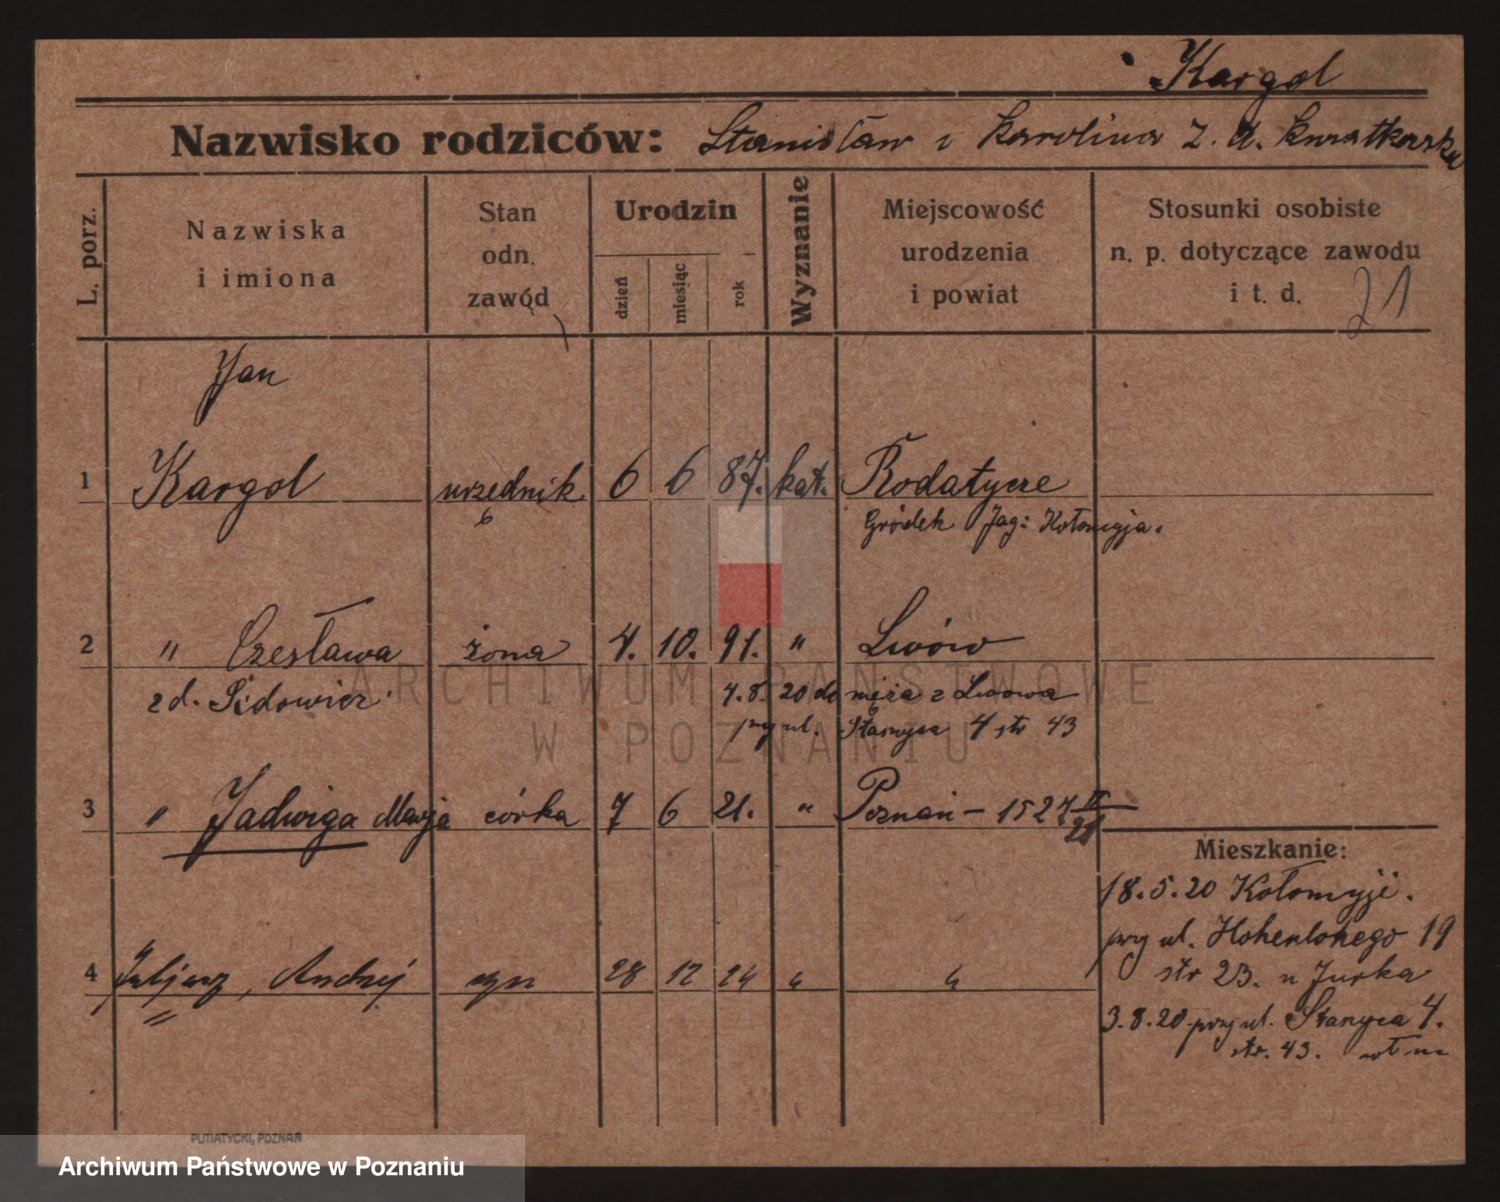 Kargol
Nazwisko rodziców: Stanisław i Karolina z. d. Kwiatkowska
L. porz.
Nazwiska
i imiona
Stan
odn.
zawód
Urodzin
dzień
miesiąc
rok
Wyznanie
Miejscowość
urodzenia
i powiat
Stosunki osobiste
n. p. dotyczące zawodu
i t. d.
21
Jan
1 Kargol urzędnik 6 6 87. kat. Rodatycze
Gródek Jag: Kołomyja.
2 " Czesława żona 4. 10. 91. " Lwów
z d. Sidowicz 4.8.20 do męża z Lwowa
przy ul. 4 str 43
3 " Jadwiga Marja córka 7 6 21. " Poznań – 1527
Mieszkanie:
18.5.20 Kołomyji.
przy ul. Hohenlohego 19
str 23. u Jurka
4 Juljusz, Andrzej syn 28 12 24 " "
3.8.20 przy ul. 4.
str. 43.
PUTIATYCKI, POZNAŃ
ARCHIWUM PAŃSTWOWE
W POZNANIU
Archiwum Państwowe w Poznaniu